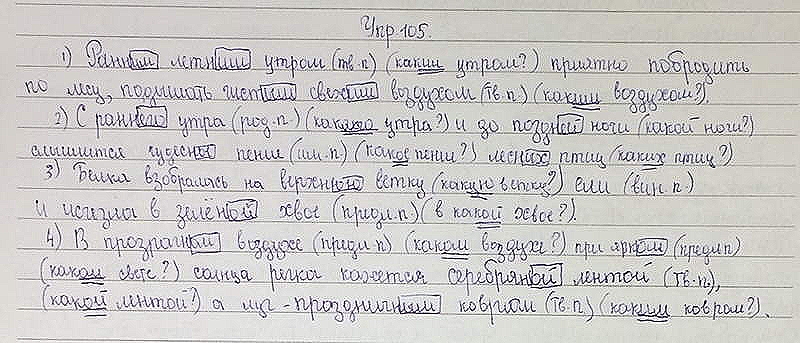 Упр 105.
1) Ранним летним утром (тв.п) (каким утром?) приятно побродить
по лесу, подышать чистым свежим воздухом (тв.п.) (каким воздухом?).
2) С раннего утра (род.п.) (какого утра?) и до поздней ночи (какой ночи?)
слышится чудесное пение (им.п.) (какое пение?) лесных птиц (каких птиц?)
3) Белка взобралась на верхнюю ветку (какую ветку?) ели (вин.п.)
и исчезла в зелёной хвое (предл.п) (в какой хвое?).
4) В прозрачном воздухе (предл.п) (каком воздухе?) при ярком (предл.п)
(каком свете?) солнца речка кажется серебряной лентой (тв.п.),
(какой лентой?) а луг - праздничным ковром (тв.п.) (каким ковром?).